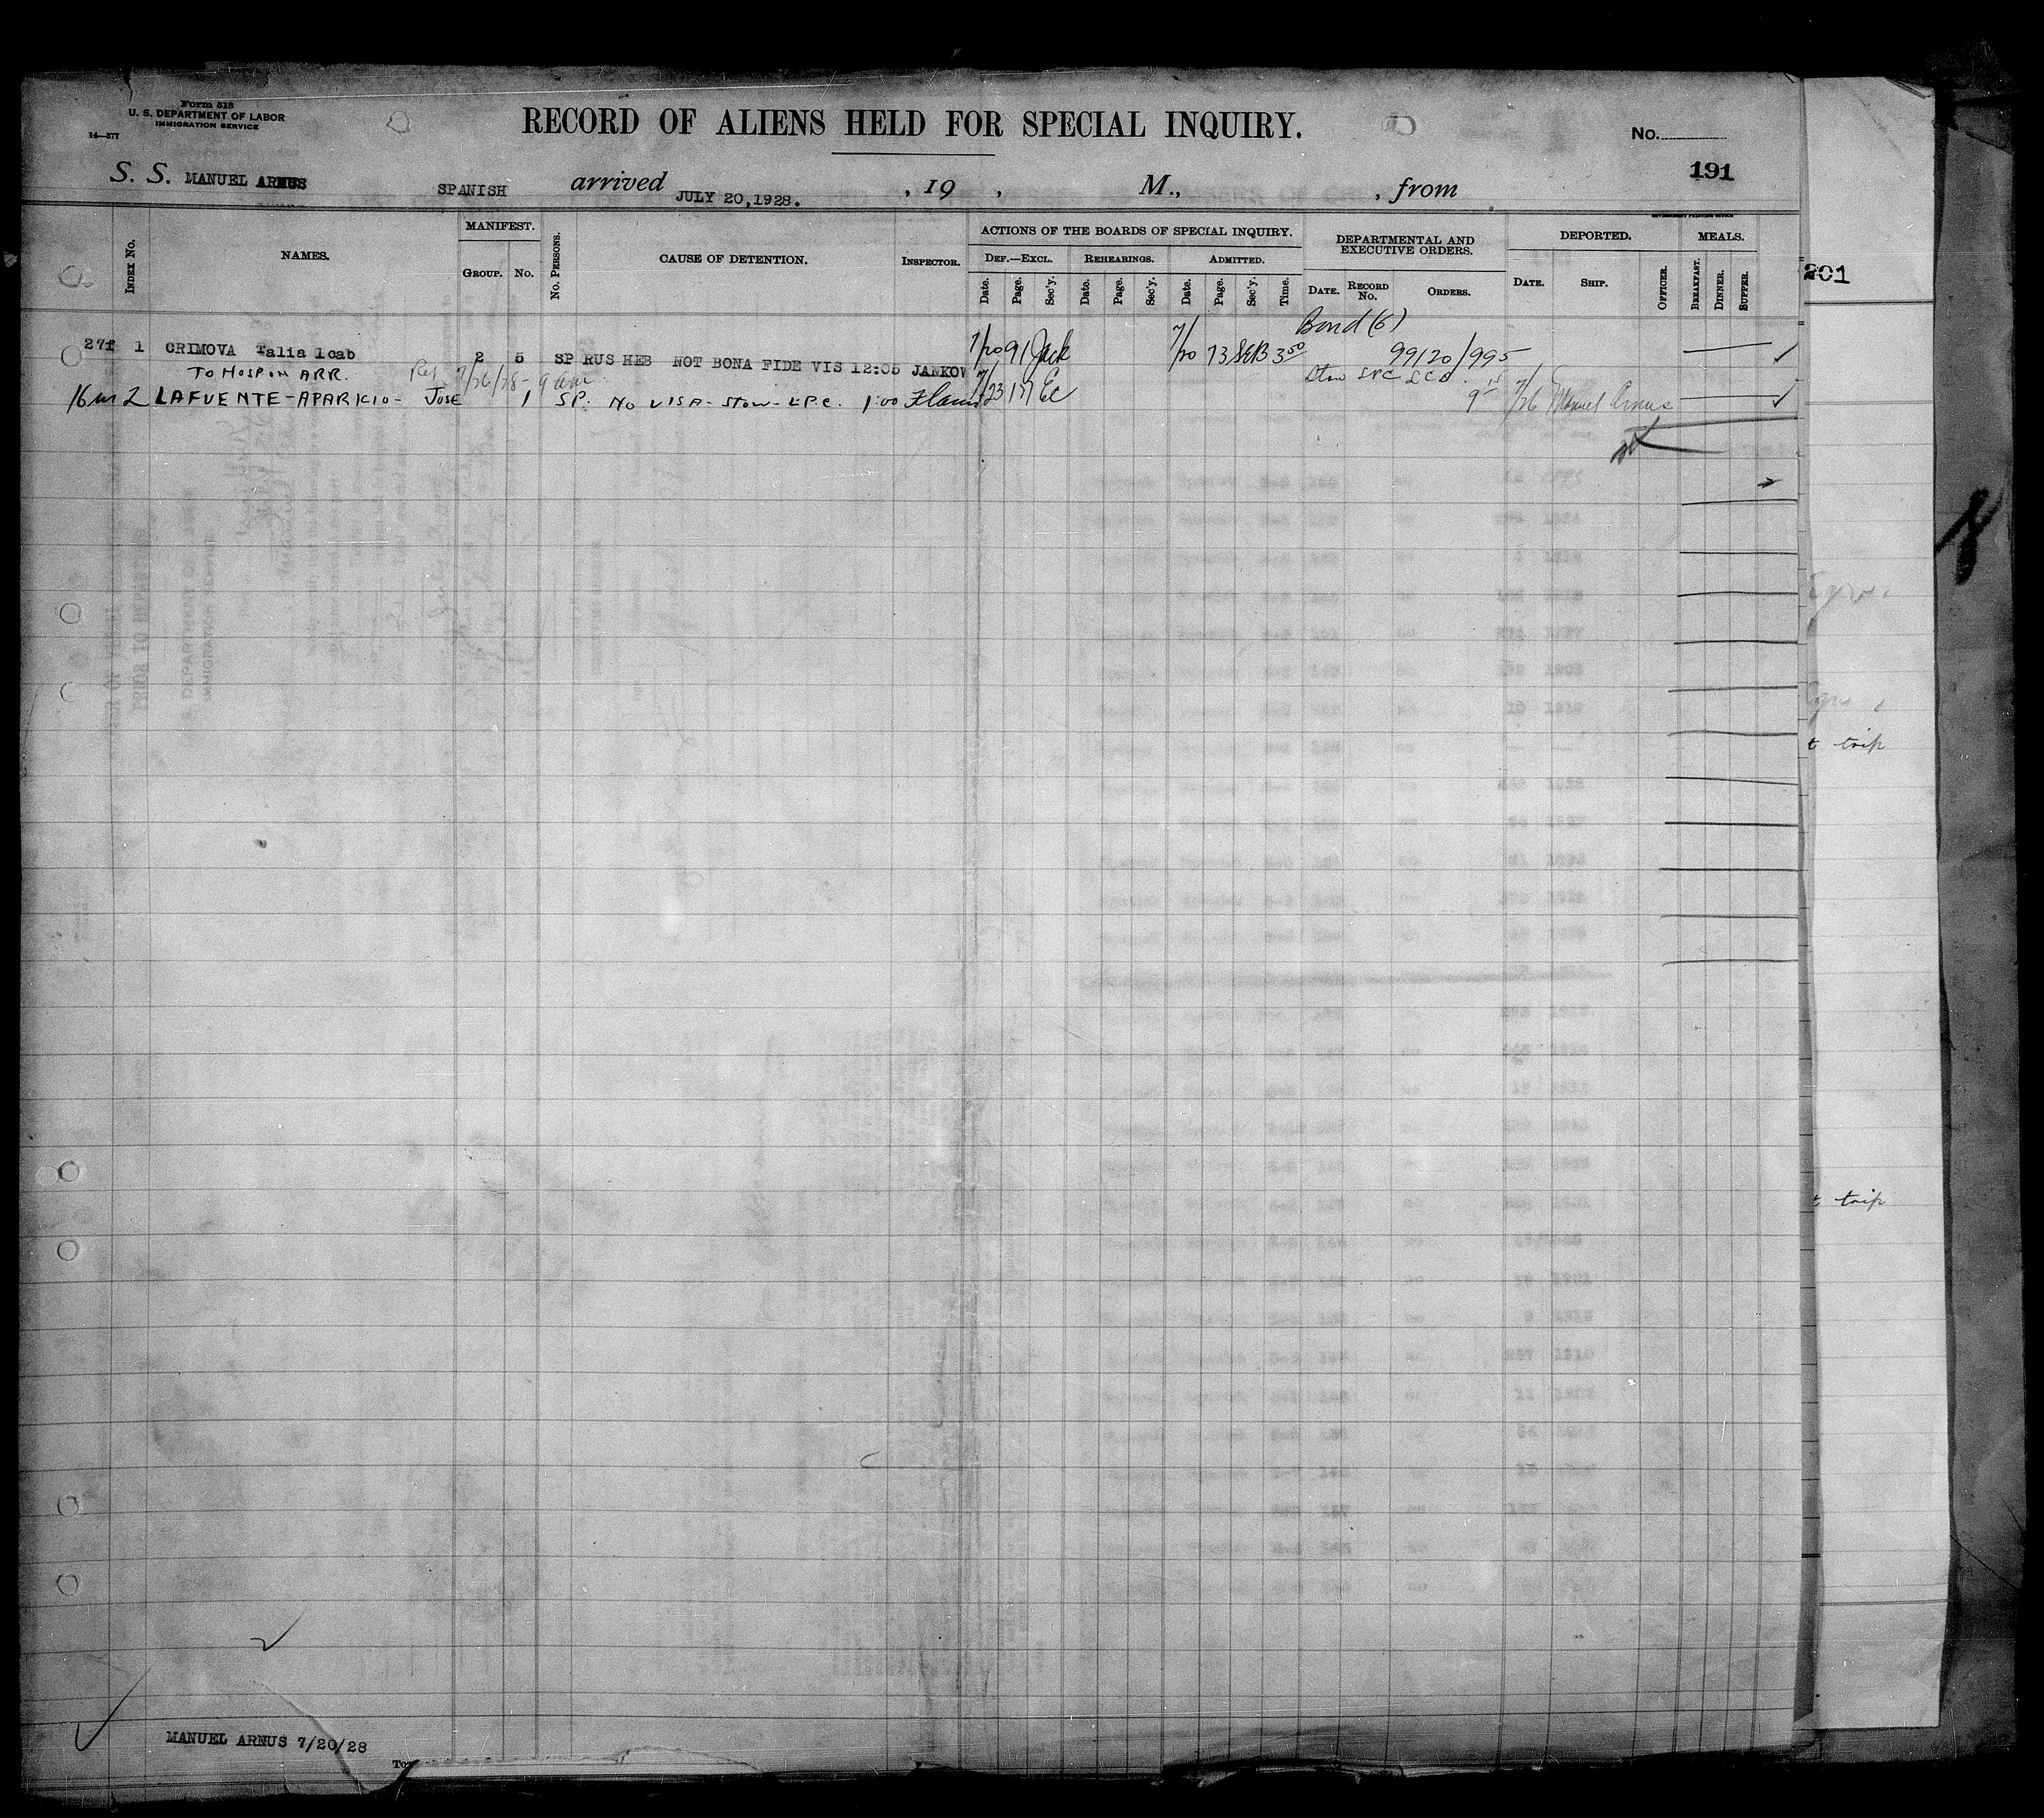 Form 518
U. S. DEPARTMENT OF LABOR
IMMIGRATION SERVICE
14—377
RECORD OF ALIENS HELD FOR SPECIAL INQUIRY.
No.
191
S. S. MANUEL ARNUS SPANISH arrived JULY 20,1928. , 19 , M., , from
GOVERNMENT PRINTING OFFICE
Index No. NAMES. MANIFEST. No. Persons. CAUSE OF DETENTION. Inspector. ACTIONS OF THE BOARDS OF SPECIAL INQUIRY. DEPARTMENTAL AND EXECUTIVE ORDERS. DEPORTED. MEALS.
Group. No. Def.—Excl. Rehearings. Admitted.
Date. Page. Sec'y. Date. Page. Sec'y. Date. Page. Sec'y. Time. Date. Record No. Orders. Date. Ship. Officer. Breakfast. Dinner. Supper.
201
Bond (6)
27f 1 CRIMOVA Talia 1cab 2 5 SP RUS HEB NOT BONA FIDE VIS 12:05 JANKOW 7/20 91 Jack 7/20 73 SEB 3 50 99120/995
TO HOSP ON ARR. 7/26/28 - 9 am
16 m 2 LAFUENTE-APARICIO- JOSE 1 SP. NO VISA - STOW - LPC. 1:00 7/23 17 EC 7/26 Manuel Arnus
t trip
t trip
MANUEL ARNUS 7/20/28